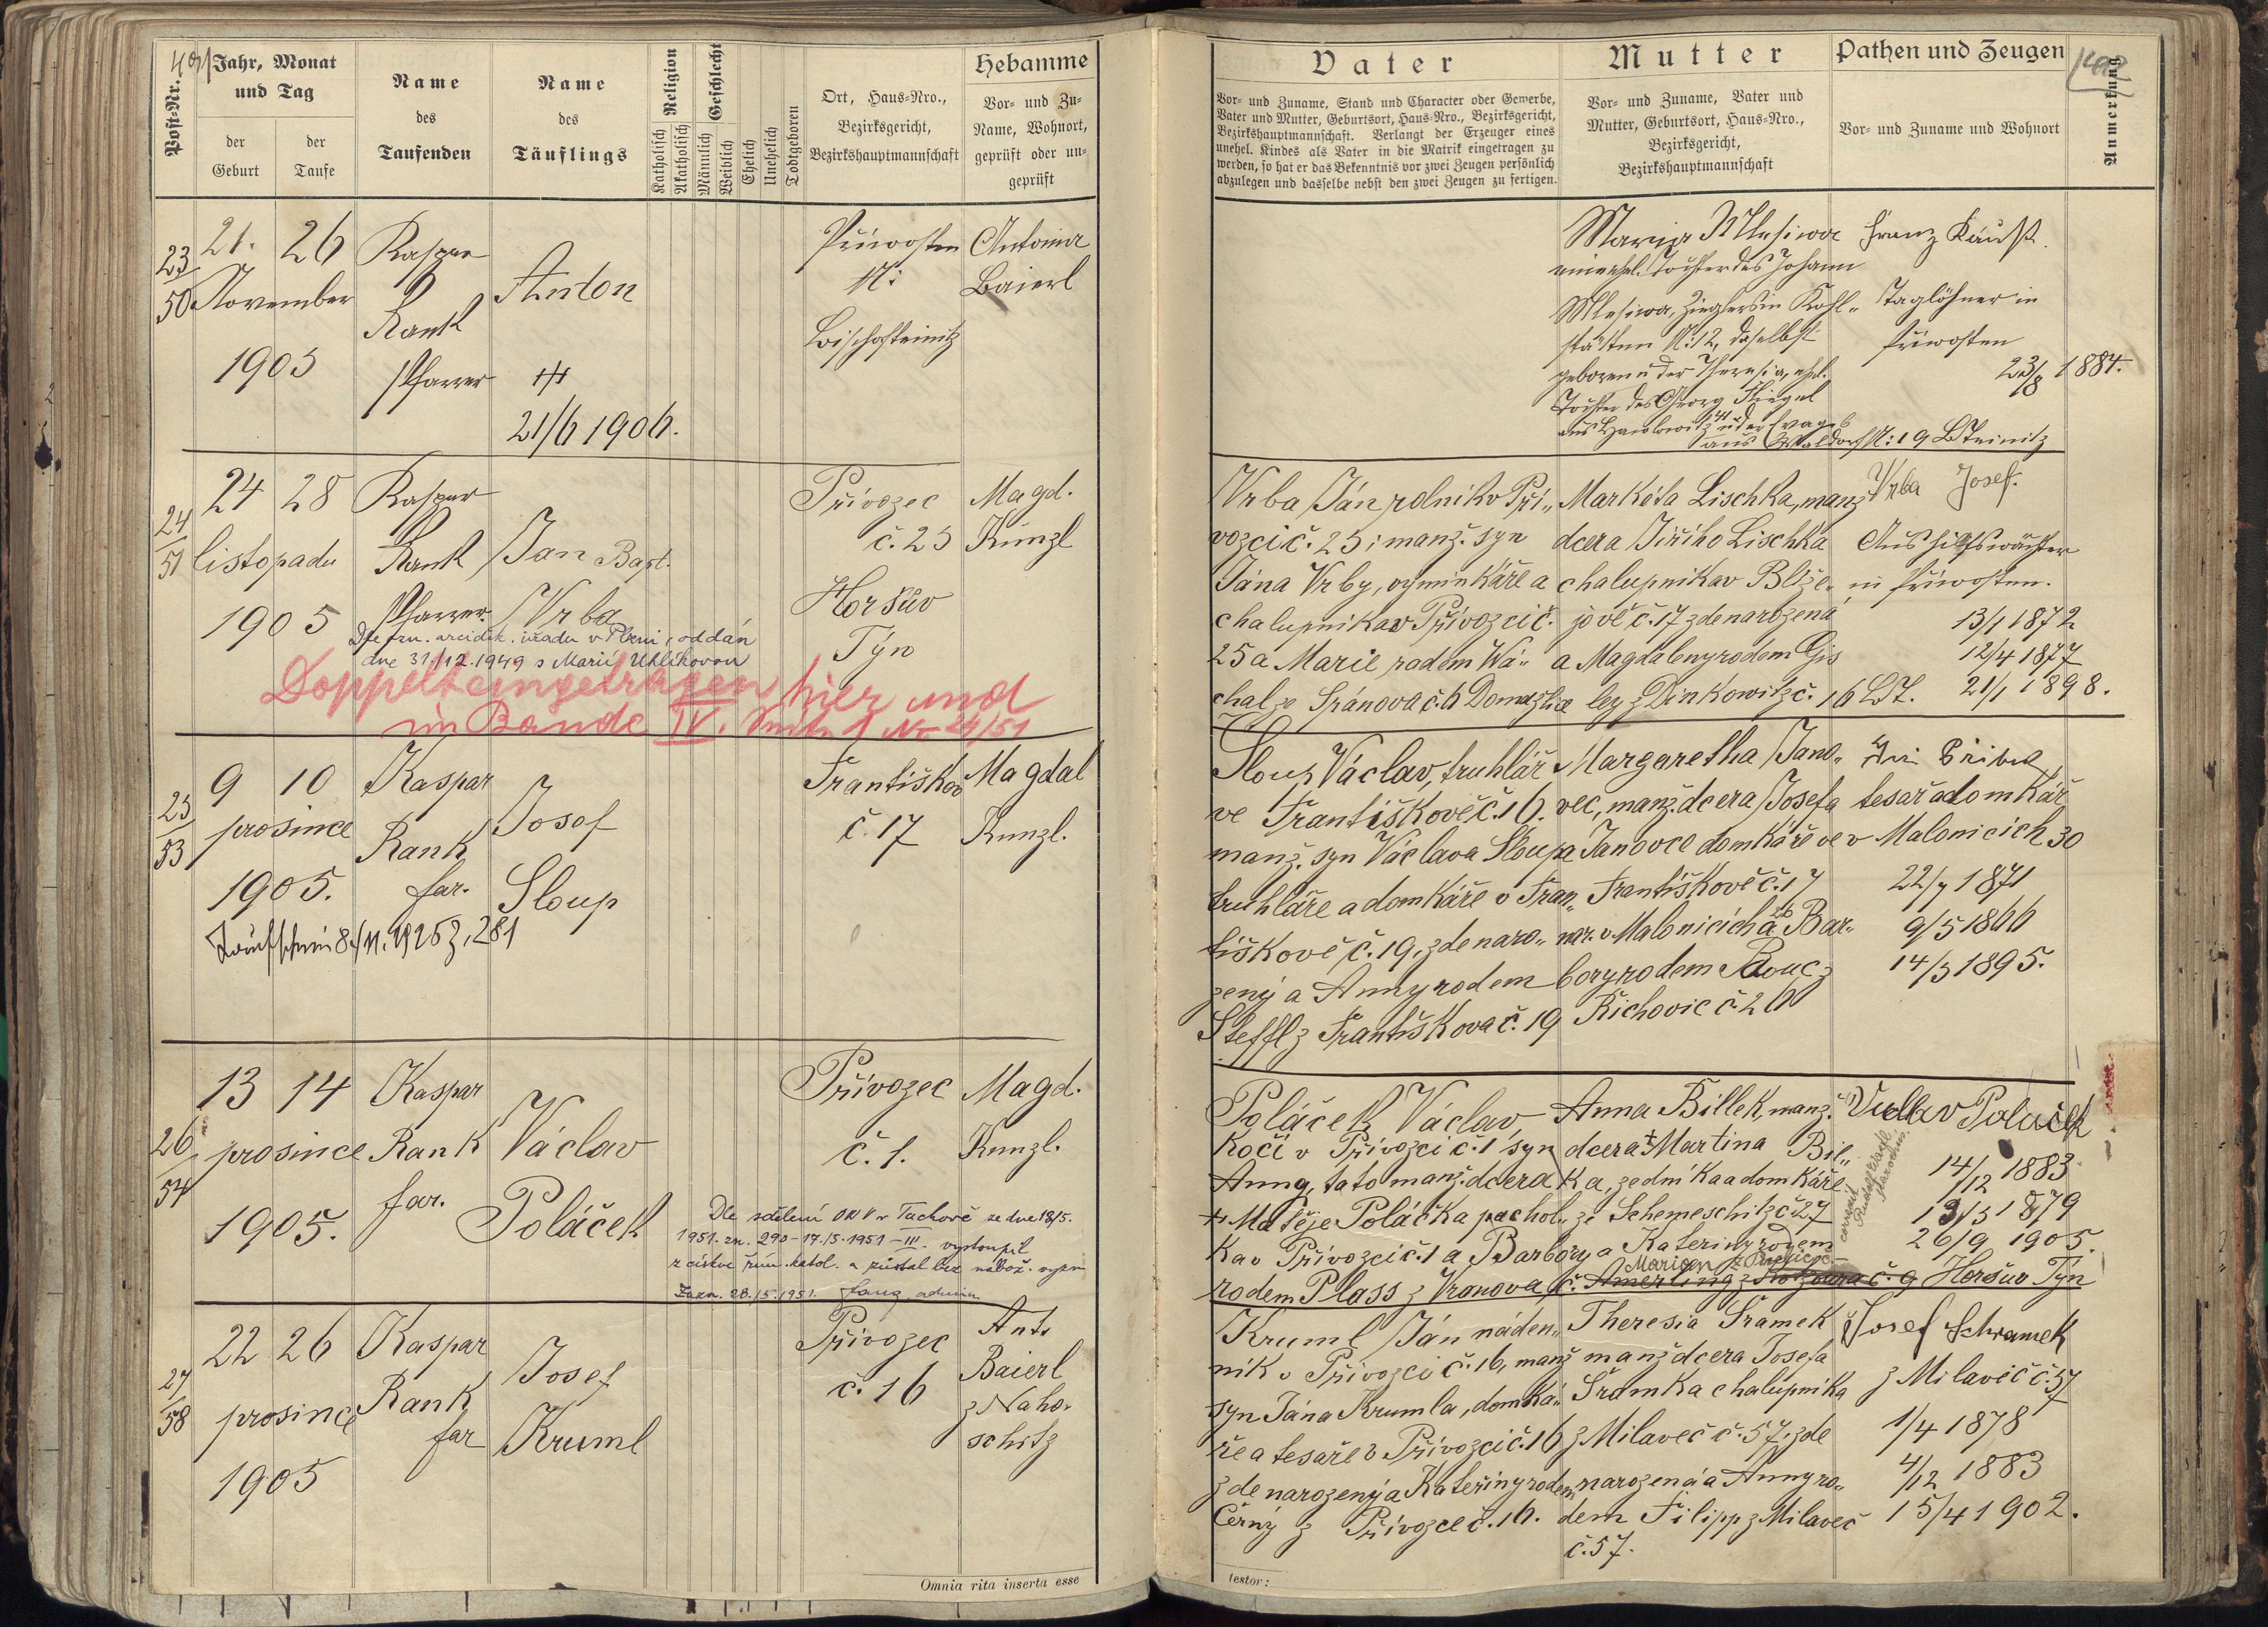 401
Post-Nr.
Jahr, Monat
und Tag
der
Geburt
der
Taufe
Name
des
Taufenden
Name
des
Täuflings
Religion
Katholisch
Akatholisch
Geschlecht
Männlich
Weiblich
Ehelich
Unehelich
Todtgeboren
Ort, Haus-Nro.,
Bezirksgericht,
Bezirkshauptmannschaft
Hebamme
Vor- und Zu-
Name, Wohnort,
geprüft oder un-
geprüft
Vater
Vor- und Zuname, Stand und Character oder Gewerbe,
Vater und Mutter, Geburtsort, Haus-Nro., Bezirksgericht,
Bezirkshauptmannschaft. Verlangt der Erzeuger eines
unehel. Kindes als Vater in die Matrik eingetragen zu
werden, so hat er das Bekenntnis vor zwei Zeugen persönlich
abzulegen und dasselbe nebst den zwei Zeugen zu fertigen.
Mutter
Vor- und Zuname, Vater und
Mutter, Geburtsort, Haus-Nro.,
Bezirksgericht,
Bezirkshauptmannschaft
Pathen und Zeugen
Vor- und Zuname und Wohnort
Anmerkung
23/50
21. 26
November
1905
Kaspar
Rank
Pfarrer
Anton
21/6 1906.
Přiwosten
Bischofteinitz
Antonia
Baierl
Maria Mlesiwa
unehel. Tochter des Johann
Mlesiwa, Zieglers in Kohl-
stätten N: 12, daselbst
geboren u der Theresia, ehel.
Tochter des Georg Fliegel
aus Waldorf N: 19 BTeinitz
Franz Kaust.
Taglöhner in
Přiwosten
23/8 1884.
24/51
24 28
listopadu
1905
Kaspar
Rank
Pfarrer.
Jan Bapt.
Vrba
Přívozec
č. 25
Horšův
Týn
Magd.
Künzl
Dle řím. arciděk. úřadu v Plzni, oddán
dne 31./12.1949 s Marií Uhlíkovou
Doppelt eingetragen hier und
im Bande IV. Seite 1 No 24/51
Vrba Ján rolník v Pří„
vozci č. 25; manž. syn
Jána Vrby, vyminkáře a
chalupnika v Přívozci č.
25 a Marie rodem Wá„
chal ze Spáňova č. 6 Domažlice
Markéta Lischka, manž
dcera Jiřího Lischka
chalupnika v Blíže„
jově č. 17 zde narozená
a Magdaleny rodem Gis
ley z Dinkowitz č. 16 BT.
Vrba Josef.
Aushilfswächter
in Přiwosten.
13/1 1872
12/4 1877
21/1 1898.
25/53
9 10
prosince
1905.
Kaspar
Rank
far.
Josef
Sloup
Taufschein 8/11. 1925 z. 281
Františkov
č. 17
Magdal
Kunzl.
Sloup Václav, truhlář
ve Františkově č. 16.
manž. syn Václava Sloupa
truhláře a domkáře v Fran„
tiškově č. 19. zde naro„
zený a Anny rodem
Steffl z Františkova č. 19
Margaretha Jano„
vec, manž. dcera Josefa
Janovce domkáře ve
Františkově č. 17
nar. v Malonicích a Bar„
bory rodem Bouc z
Řichovic č. 20
tesař a domkář
v Malonicích 30
22/7 1871
9/5 1866
14/5 1895.
26/54
13 14
prosince
1905.
Kaspar
Rank
far.
Václav
Poláček
Přívozec
č. 1.
Magd.
Kunzl.
Dle sdělení ONV v Tachově ze dne 18/5.
1951. zn. 290-17./5.1951-III. vystoupil
z církve řím. katol. a zůstal bez nábož. vyzn
Zazn. 28./5.1951.
Poláček Václav,
kočí v Přívozci č. 1 syn
Anny, tato manž. dcera
+ Matěje Poláčka pachol„
ka v Přívozci č. 1 a Barbory
rodem Plass z Vranova č.
Anna Billek, manž.
dcera + Martina Bil„
ka, zedníka a domkáře
ze Schemeschitz č. 27
a Kateriny rodem
Amerling z Kotzoura č. 9 Horšův Týn
Václav Poláček
14/12 1883
13/3 1879
26/9 1905.
27/58
22 26
prosince
1905
Kaspar
Rank
far
Josef
Kruml
Přívozec
č. 16
Ant.
Baierl
z Naho-
schitz
Kruml Ján náden„
ník v Přívozci č. 16, manž
syn Jána Krumla, domká„
ře a tesaře v Přívozci č. 16
zde narozený a Kateřiny rodem
Černý z Přívozce č. 16.
Theresia Šramek
manž dcera Josefa
Šramka chalupnika
z Milaveč č. 57. zde
narozená a Anny ro„
dem Filipp z Milaveč
č. 57.
Josef Schramek
z Milavič č. 57
1/4 1878
4/12 1883
15/4 1902.
Omnia rita inserta esse
testor: